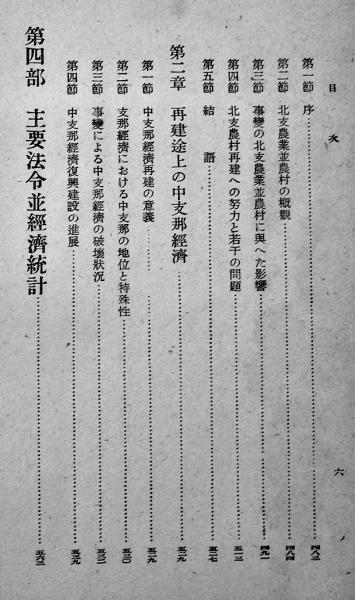 目次
第一節 序……四八三
第二節 北支農業並農村の概觀……四八四
第三節 事變の北支農業並農村に與へた影響……四九一
第四節 北支農村再建への努力と若干の問題……五一三
第五節 結語……五二七
第二章 再建途上の中支那經濟……五二九
第一節 中支那經濟再建の意義……五二九
第二節 支那經濟における中支那の地位と特殊性……五三〇
第三節 事變による中支那經濟の破壞狀況……五三二
第四節 中支那經濟復興建設の進展……五三九
第四部 主要法令並經濟統計……五六三
六